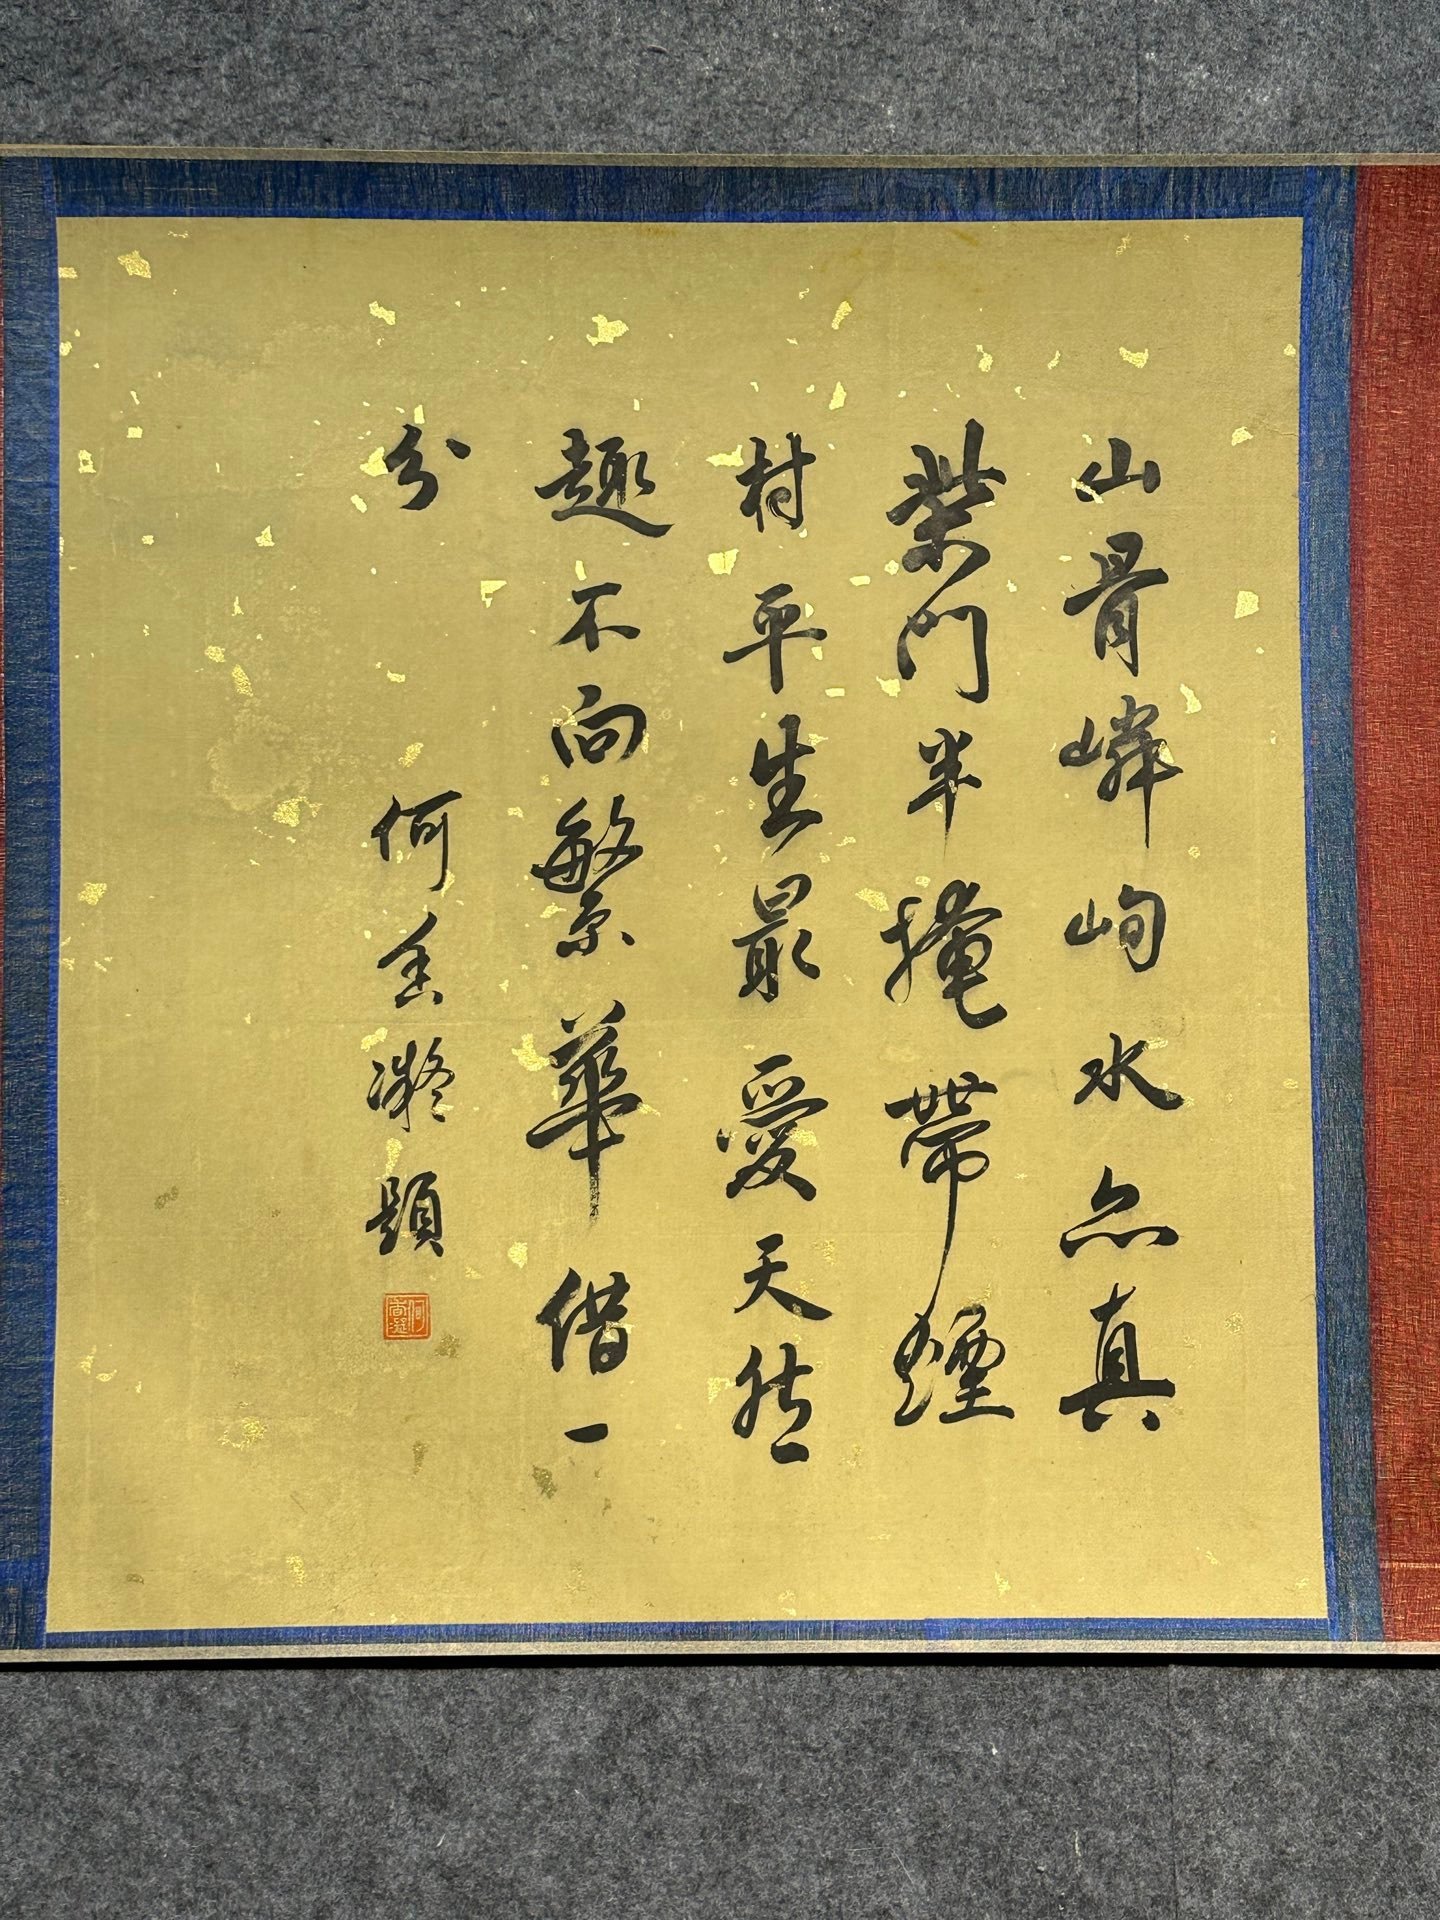 山骨嶙峋水亦真
柴門半掩帶煙
村平生最愛天然
趣不向繁華借一
分
何香凝題
何香凝